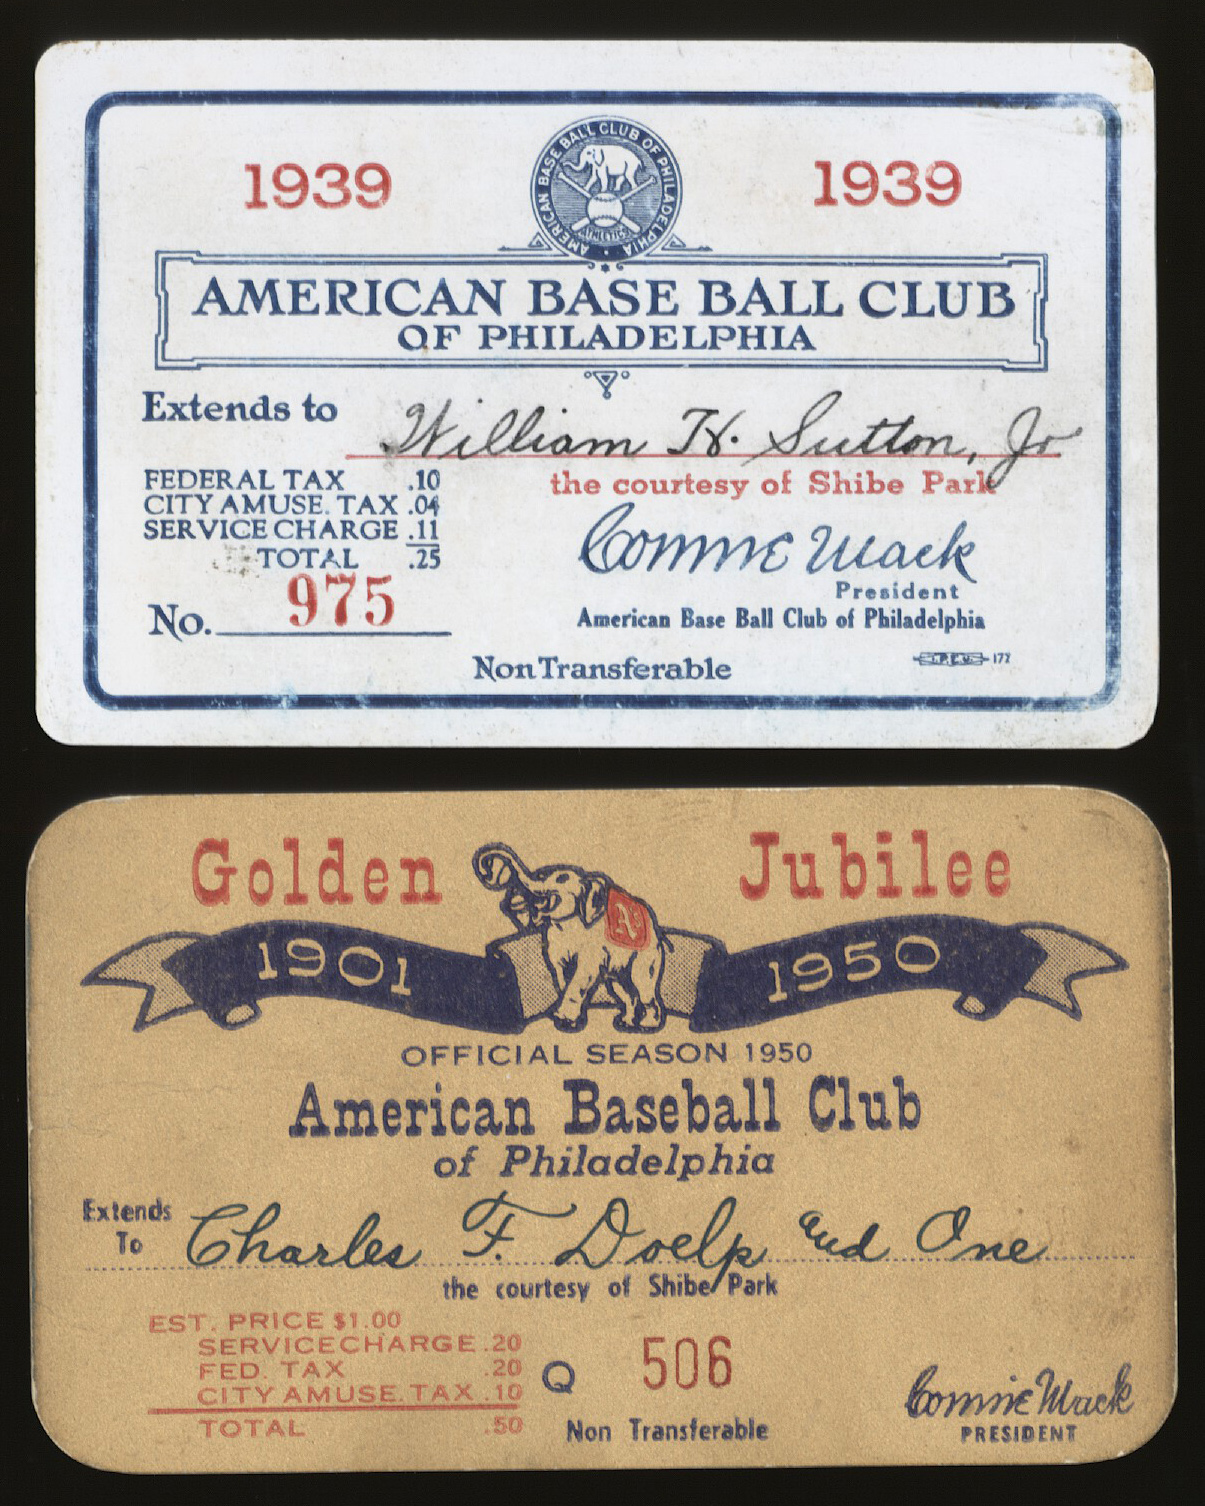 1939
1939
AMERICAN BASE BALL CLUB OF PHILADELPHIA
ATHLETICS
AMERICAN BASE BALL CLUB
OF PHILADELPHIA
Extends to William H. Sutton, Jr
the courtesy of Shibe Park
FEDERAL TAX .10
CITY AMUSE. TAX .04
SERVICE CHARGE .11
TOTAL .25
No. 975
Connie Mack
President
American Base Ball Club of Philadelphia
Non Transferable
177
Golden Jubilee
1901 1950
A's
OFFICIAL SEASON 1950
American Baseball Club
of Philadelphia
Extends To Charles F. Doelp and One
the courtesy of Shibe Park
EST. PRICE $1.00
SERVICE CHARGE .20
FED. TAX .20
CITY AMUSE. TAX .10
TOTAL .50
Q 506
Non Transferable
Connie Mack
PRESIDENT